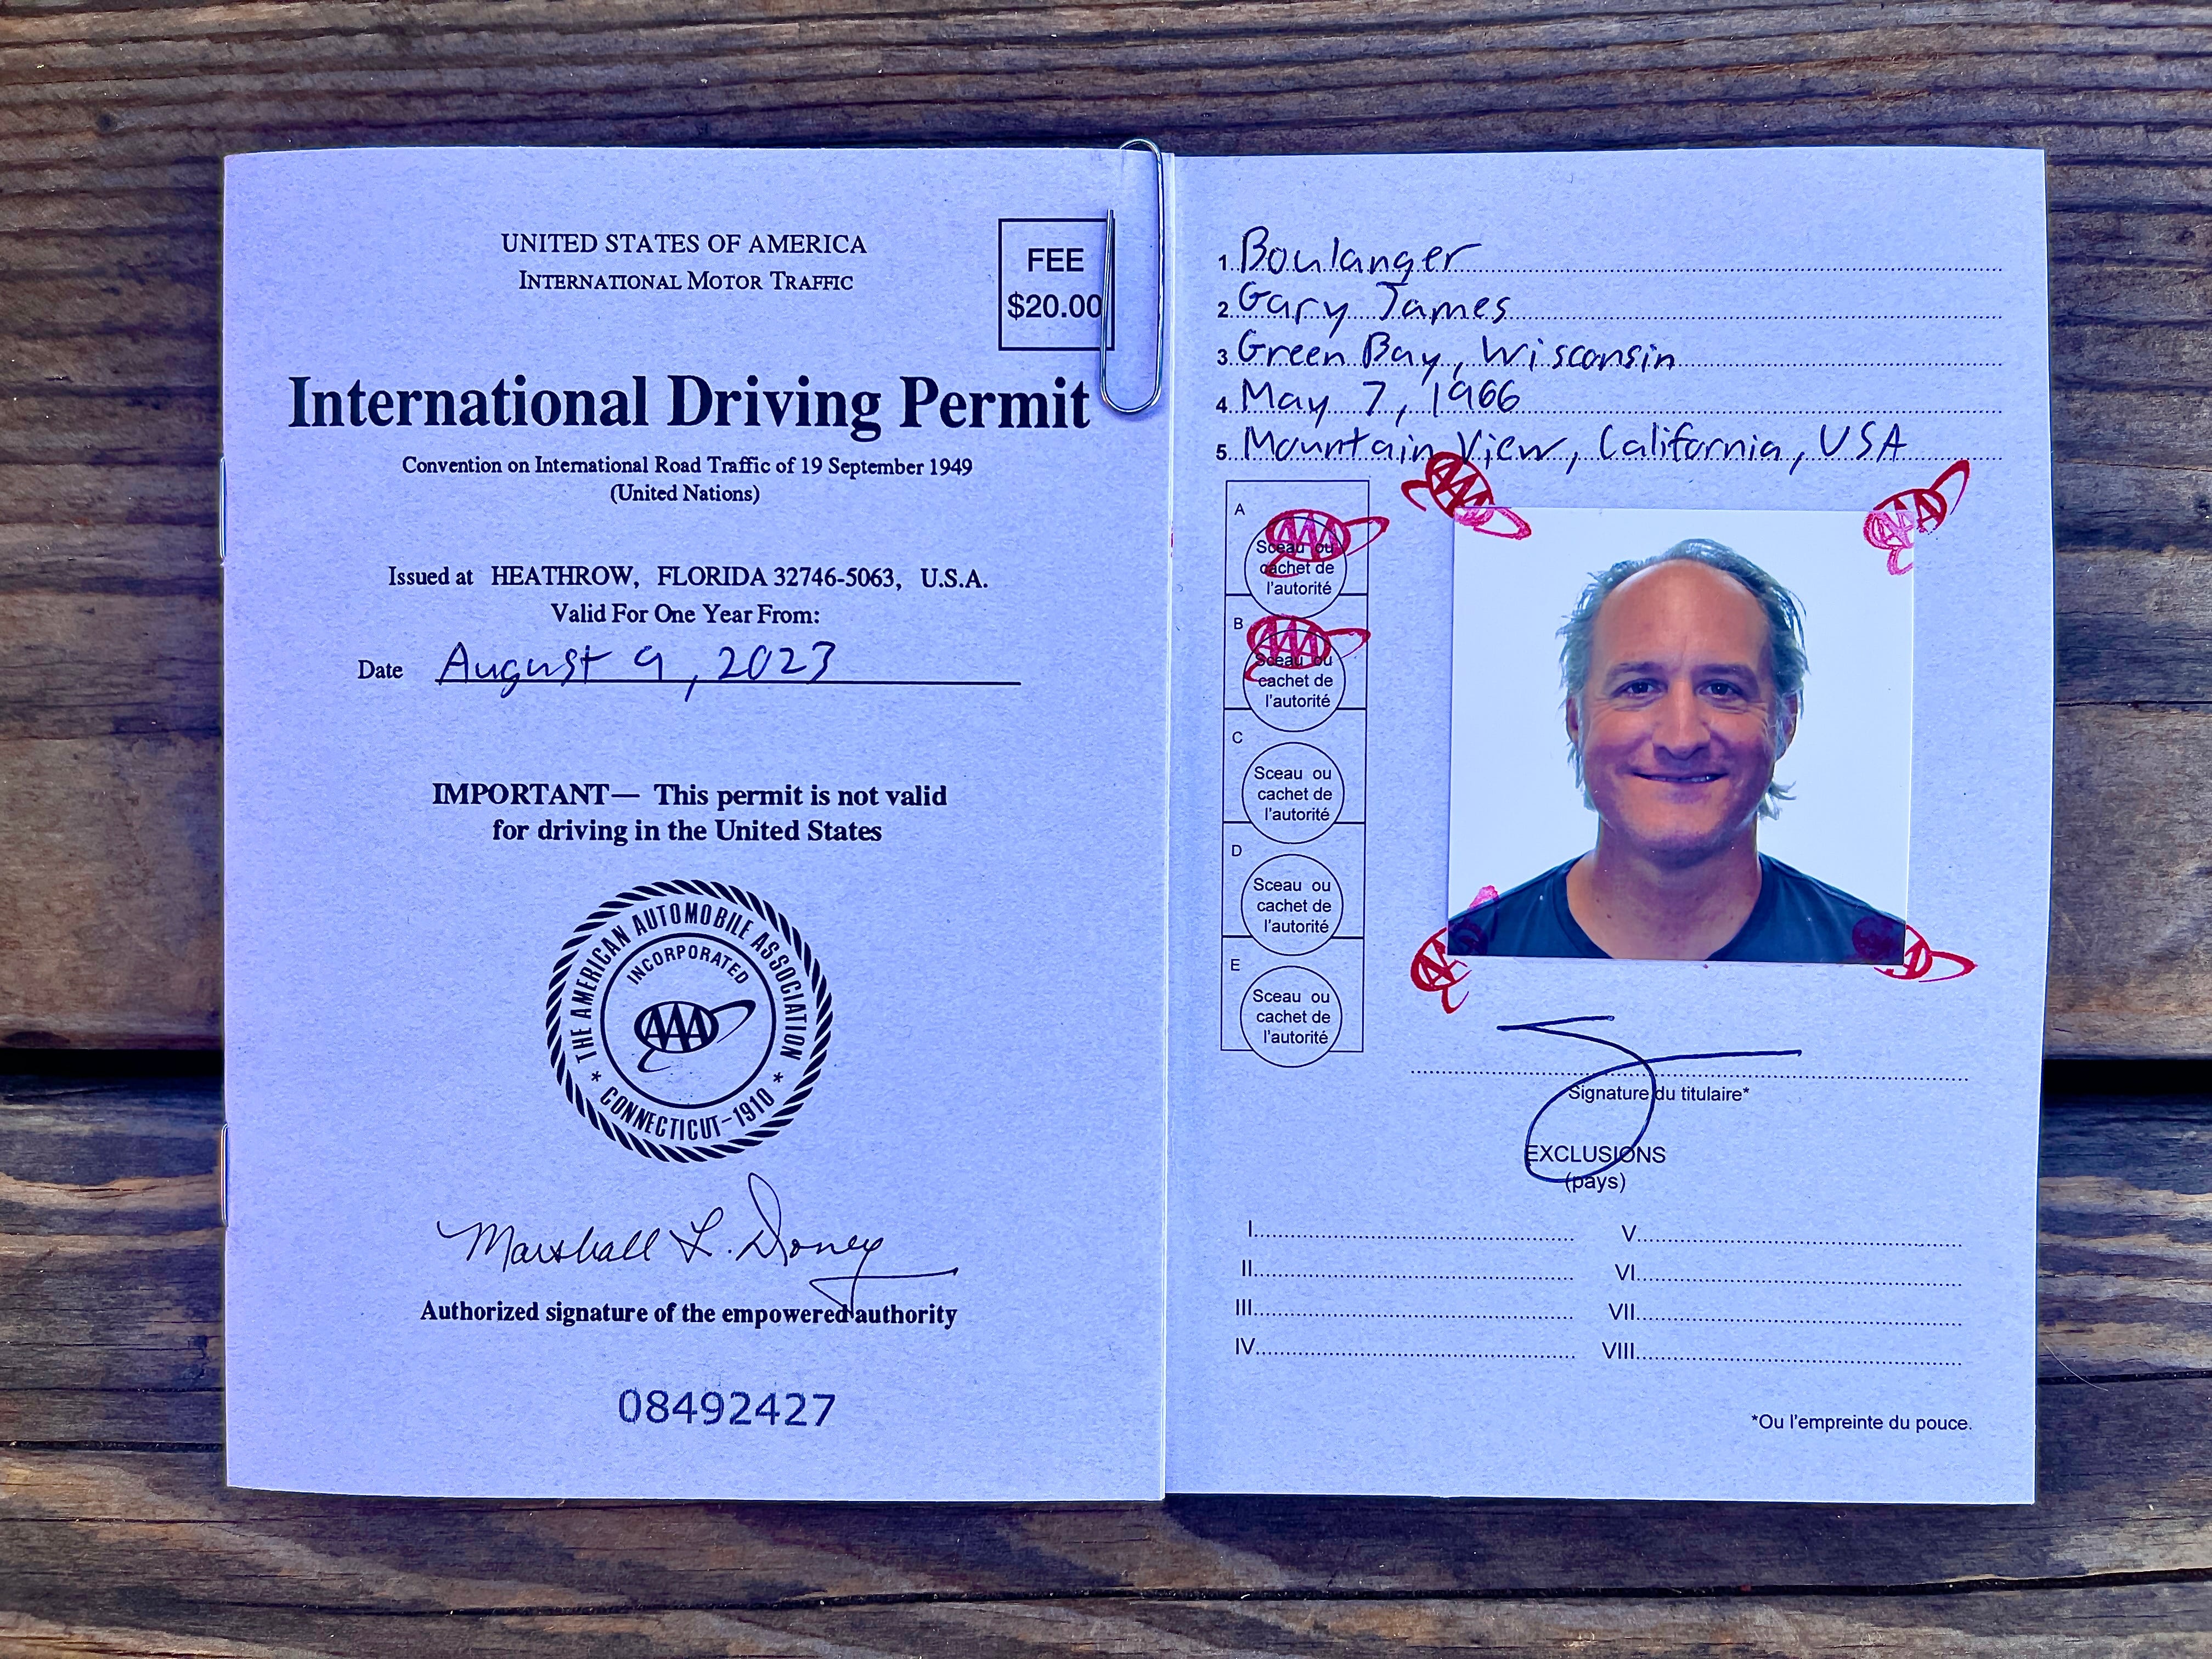 UNITED STATES OF AMERICA
INTERNATIONAL MOTOR TRAFFIC
FEE
$20.00
International Driving Permit
Convention on International Road Traffic of 19 September 1949
(United Nations)
Issued at HEATHROW, FLORIDA 32746-5063, U.S.A.
Valid For One Year From:
Date August 9, 2023
IMPORTANT— This permit is not valid
for driving in the United States
THE AMERICAN AUTOMOBILE ASSOCIATION
INCORPORATED
AAA
* CONNECTICUT–1910 *
Marshall L. Doney
Authorized signature of the empowered authority
08492427
1. Boulanger
2. Gary James
3. Green Bay, Wisconsin
4. May 7, 1966
5. Mountain View, California, USA
AAA
AAA
A
AAA
Sceau ou
cachet de
l'autorité
B
AAA
Sceau ou
cachet de
l'autorité
C
Sceau ou
cachet de
l'autorité
D
Sceau ou
cachet de
l'autorité
E
Sceau ou
cachet de
l'autorité
Signature du titulaire*
EXCLUSIONS
(pays)
I. V.
II. VI.
III. VII.
IV. VIII.
*Ou l'empreinte du pouce.